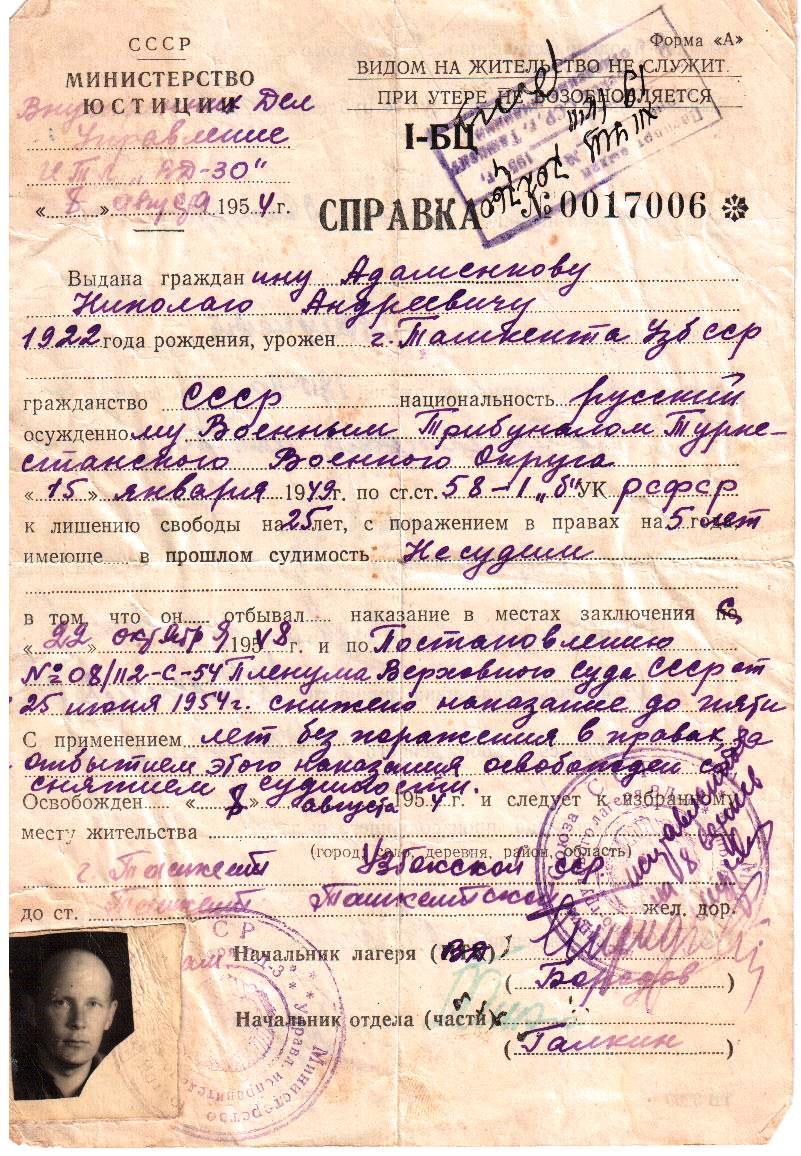 СССР
Форма «А»
МИНИСТЕРСТВО
ЮСТИЦИИ
ВИДОМ НА ЖИТЕЛЬСТВО НЕ СЛУЖИТ
ПРИ УТЕРЕ НЕ ВОЗОБНОВЛЯЕТСЯ
Внутренних Дел
Управление
ИТЛ „ЯД-30"
I-БЦ
« 8 » августа 1954 г.
СПРАВКА № 0017006
Выдана граждан ину Адаменкову
Николаю Андреевичу
1922 года рождения, урожен г. Ташкента Узб ССР
гражданство СССР национальность русский
осужденно му Военным Трибуналом Турке-
станского Военного Округа
« 15 » января 1949 г. по ст.ст. 58-1 „б" УК РСФСР
к лишению свободы на 25 лет, с поражением в правах на 5 лет
имеюще в прошлом судимость Не судим
в том, что он отбывал наказание в местах заключения с
« 22 » октября 1948 г. и по Постановлению
№ 08/112-С-54 Пленума Верховного Суда СССР от
25 июня 1954 г. снижено наказание до пяти
С применением лет без поражения в правах за
отбытием этого наказания освобожден со
снятием судимости.
Освобожден « 8 » августа 1954 г. и следует к избранному
месту жительства
(город, село, деревня, район, область)
г. Ташкент Узбекской ССР
до ст. Ташкент Ташкентской жел. дор.
Начальник лагеря
( Бородов )
Начальник отдела (части)
( Галкин )